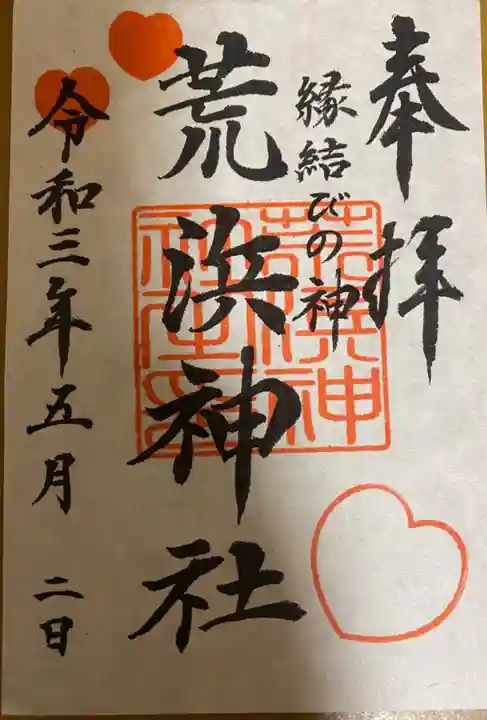 奉拝
縁結びの神
荒浜神社
令和三年五月二日